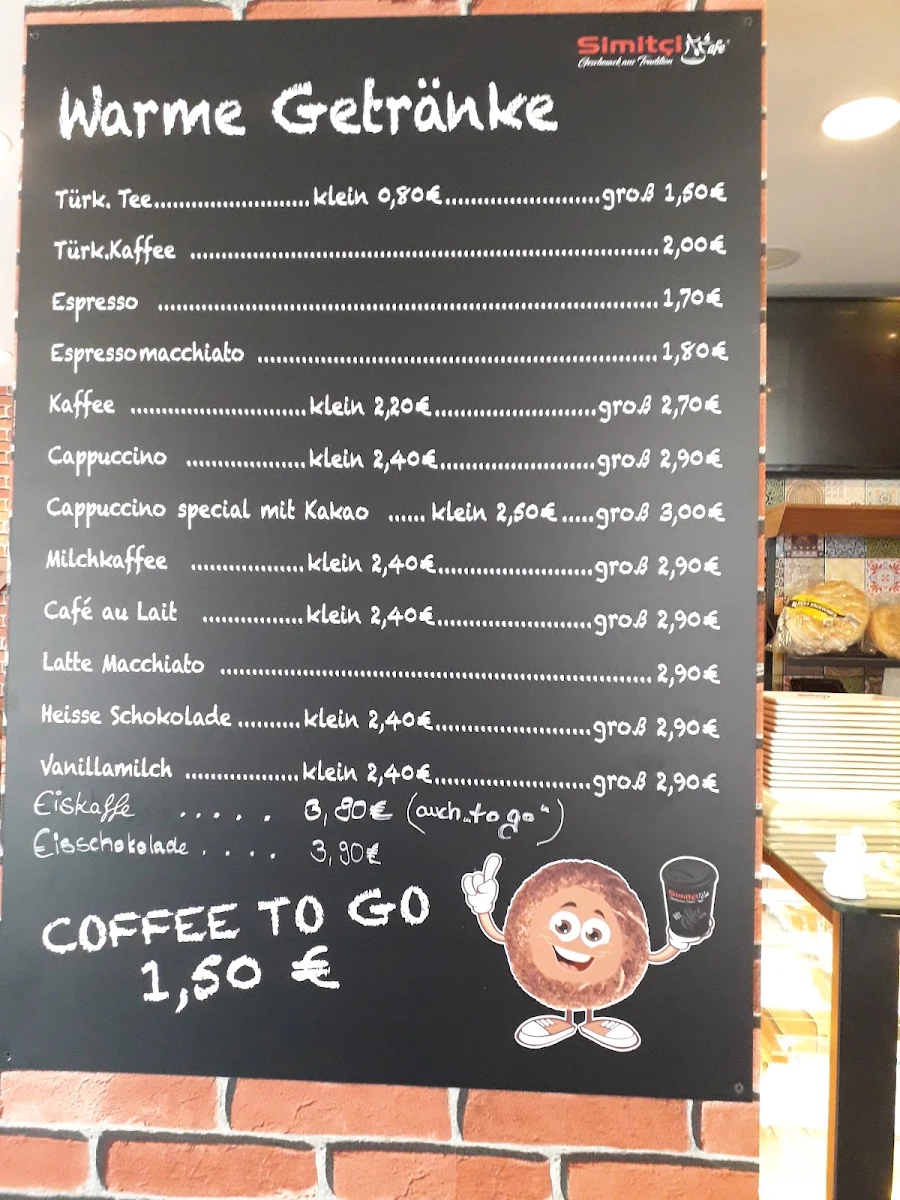 Simitçi Cafe
Geschmack aus Tradition
Warme Getränke
Türk. Tee..............................klein 0,80€..............................groß 1,50€
Türk.Kaffee ..............................2,00€
Espresso ..............................1,70€
Espressomacchiato ..............................1,80€
Kaffee ..............................klein 2,20€..............................groß 2,70€
Cappuccino ....................klein 2,40€..............................groß 2,90€
Cappuccino special mit Kakao ...... klein 2,50€.....groß 3,00€
Milchkaffee ....................klein 2,40€..............................groß 2,90€
Café au Lait ..................klein 2,40€..............................groß 2,90€
Latte Macchiato ..............................2,90€
Heisse Schokolade ..........klein 2,40€..............................groß 2,90€
Vanillamilch ....................klein 2,40€..............................groß 2,90€
Eiskaffe ..... 3,90€ (auch „to go“)
Eisschokolade .... 3,90€
COFFEE TO GO
1,50 €
Simitçi